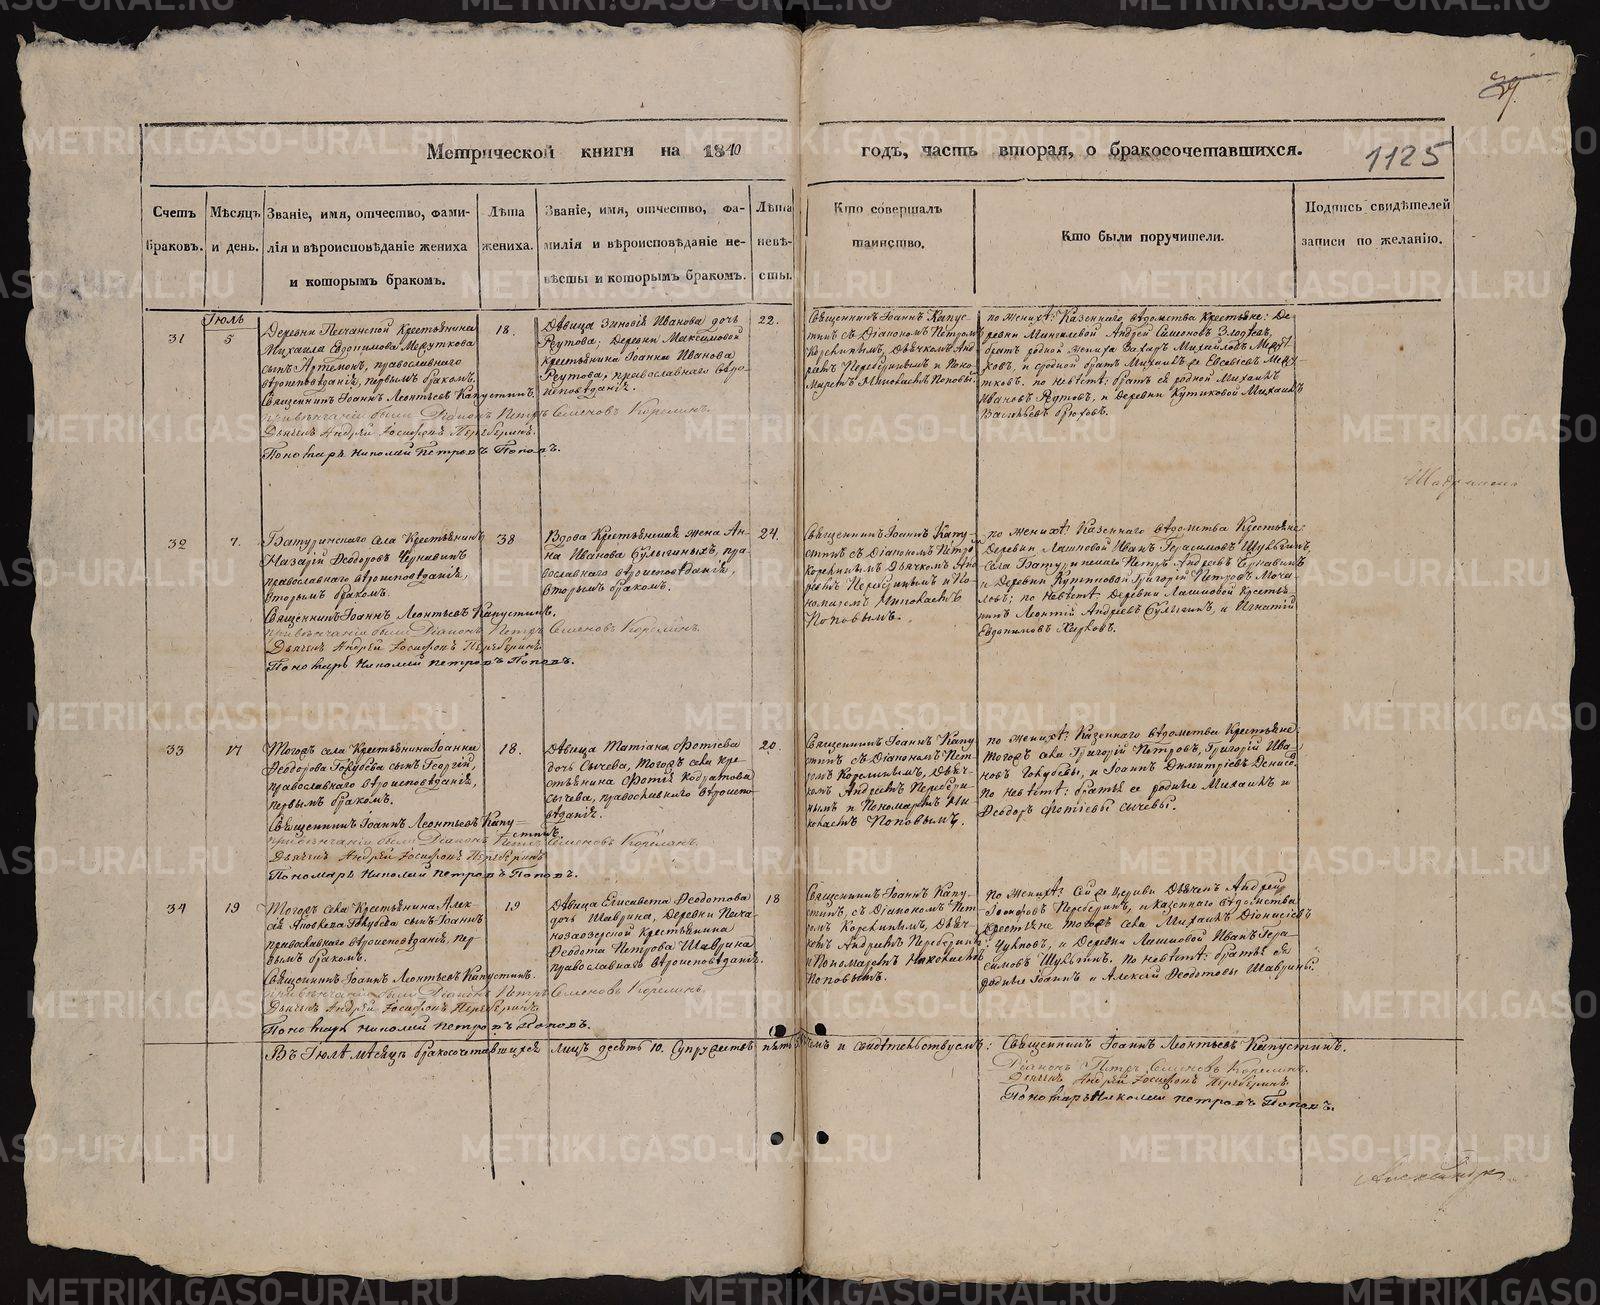 Метрической книги на 1840
годъ, часть вторая, о бракосочетавшихся.
1125
Счетъ
браковъ.
Мѣсяцъ
и день.
Званіе, имя, отчество, фами-
лія и вѣроисповѣданіе жениха
и которымъ бракомъ.
Лѣта
жениха.
Званіе, имя, отчество, фа-
милія и вѣроисповѣданіе не-
вѣсты и которымъ бракомъ.
Лѣта
невѣ-
сты.
Кто совершалъ
таинство.
Кто были поручители.
Подпись свидѣтелей
записи по желанію.
Іюль
31
5
Деревни Песчанской Крестьянина
Михаила Евдокимова
сынъ Артемонъ, православнаго
вѣроисповѣданія, первымъ бракомъ.
Священникъ Іоаннъ Леонтьевъ Капустинъ.
привѣнчаніи были Діаконъ Петръ Семеновъ Корелинъ.
Дьячекъ Андрей Іосифовъ
Пономарь Николай Петровъ Поповъ.
18.
Дѣвица Зиновія Иванова дочь
Реутова; Деревни Максимовой
крестьянина Іоанна Иванова
Реутова, православнаго вѣро-
исповѣданія.
22.
Священникъ Іоаннъ Капус-
тинъ съ Діакономъ Петромъ
Корелинымъ, Дьячкомъ Анд-
реемъ и Поно-
маремъ Николаемъ Поповы
по женихѣ: Казеннаго вѣдомства крестьяне: Де-
ревни Андрей Симоновъ
братъ родной жениха Захаръ Михайловъ
и сродной братъ Михаилъ
по невѣстѣ: братъ ея родной Михаилъ
Ивановъ Реутовъ, и Деревни Михаилъ
32
7.
Батуринскаго села Крестьянинъ
Назарій Ѳеодоровъ Чернавинъ
православнаго вѣроисповѣданія,
вторымъ бракомъ.
Священникъ Іоаннъ Леонтьевъ Капустинъ.
привѣнчаніи были Діаконъ Петръ Семеновъ Корелинъ.
Дьячекъ Андрей Іосифовъ
Пономарь Николай Петровъ Поповъ.
38
Вдова Крестьянская жена Ан-
на Иванова Сулыгиныхъ, пра-
вославнаго вѣроисповѣданія,
вторымъ бракомъ.
24.
Священникъ Іоаннъ Капу-
стинъ съ Діакономъ Петро
Корелинымъ Дьячкомъ Анд
реемъ и По-
номаремъ Николаемъ
Поповымъ.
по женихѣ: Казеннаго вѣдомства Крестьяне:
Деревни Лашковой Иванъ Герасимовъ
Села Батуринскаго Петръ Андреевъ Чернавинъ
и Деревни Григорій Петровъ Моча-
ловъ; по невѣстѣ: Деревни Лашковой крестья-
нинъ Леонтій Андреевъ Сулыгинъ, и Игнатій
Евдокимовъ
33
17
Тогожъ села Крестьянина Іоанна
Ѳеодорова Голубева сынъ Георгій,
православнаго вѣроисповѣданія,
первымъ бракомъ.
Священникъ Іоаннъ Леонтьевъ Капу-
стинъ.
привѣнчаніи были Діаконъ Петръ Семеновъ Корелинъ.
Дьячекъ Андрей Іосифовъ
Пономарь Николай Петровъ Поповъ.
18.
Дѣвица Татіана Фотіева
дочь Сычева, Тогожъ села кре-
стьянина Фотія Кодратова
Сычева, православнаго вѣроиспо-
вѣданія.
20.
Священникъ Іоаннъ Капу
стинъ съ Діакономъ Пет-
ромъ Корелинымъ, Дьяч-
комъ Андреемъ
и Пономаремъ Ни-
колаемъ Поповымъ.
по женихѣ: Казеннаго вѣдомства Крестьяне:
Тогожъ села Григорій Петровъ, Григорій Ива-
новъ Голубевы, и Іоаннъ Димитріевъ
По невѣстѣ: братья ее родные Михаилъ и
Ѳеодоръ Фотіевы Сычевы.
34
19
Тогожъ села Крестьянина Алек-
сѣя Голубева сынъ Іоаннъ
православнаго вѣроисповѣданія, пер-
вымъ бракомъ.
Священникъ Іоаннъ Леонтьевъ Капустинъ.
привѣнчаніи были Діаконъ Петръ Семеновъ Корелинъ.
Дьячекъ Андрей Іосифовъ
Пономарь Николай Петровъ Поповъ.
19
Дѣвица Елисавета Ѳеодотова
дочь Шаврина, Деревни
крестьянина
Ѳеодота Петрова Шаврина
православнаго вѣроисповѣданія.
18
Священникъ Іоаннъ Капу-
стинъ, съ Діакономъ Пет
ромъ Корелинымъ, Дьяч-
комъ Андреемъ
и Пономаремъ Николаемъ
Поповымъ.
По женихѣ: Сей же церкви Дьячекъ Андрей
Іосифовъ и казеннаго вѣдомства
Крестьяне Тогожъ села Михаилъ Діонисіевъ
и Деревни Лашковой Иванъ Гера-
симовъ По невѣстѣ: братья ея
родные Іоаннъ и Алексѣй Ѳеодотовы Шаврины.
Въ Іюлѣ мѣсяцѣ бракосочетавшихся лицъ десять 10. Супружествъ пять
и свидѣтельствуемъ: Священникъ Іоаннъ Леонтьевъ Капустинъ.
Діаконъ Петръ Семеновъ Корелинъ.
Дьячекъ Андрей Іосифовъ
Пономарь Николай Петровъ Поповъ.
METRIKI.GASO-URAL.RU